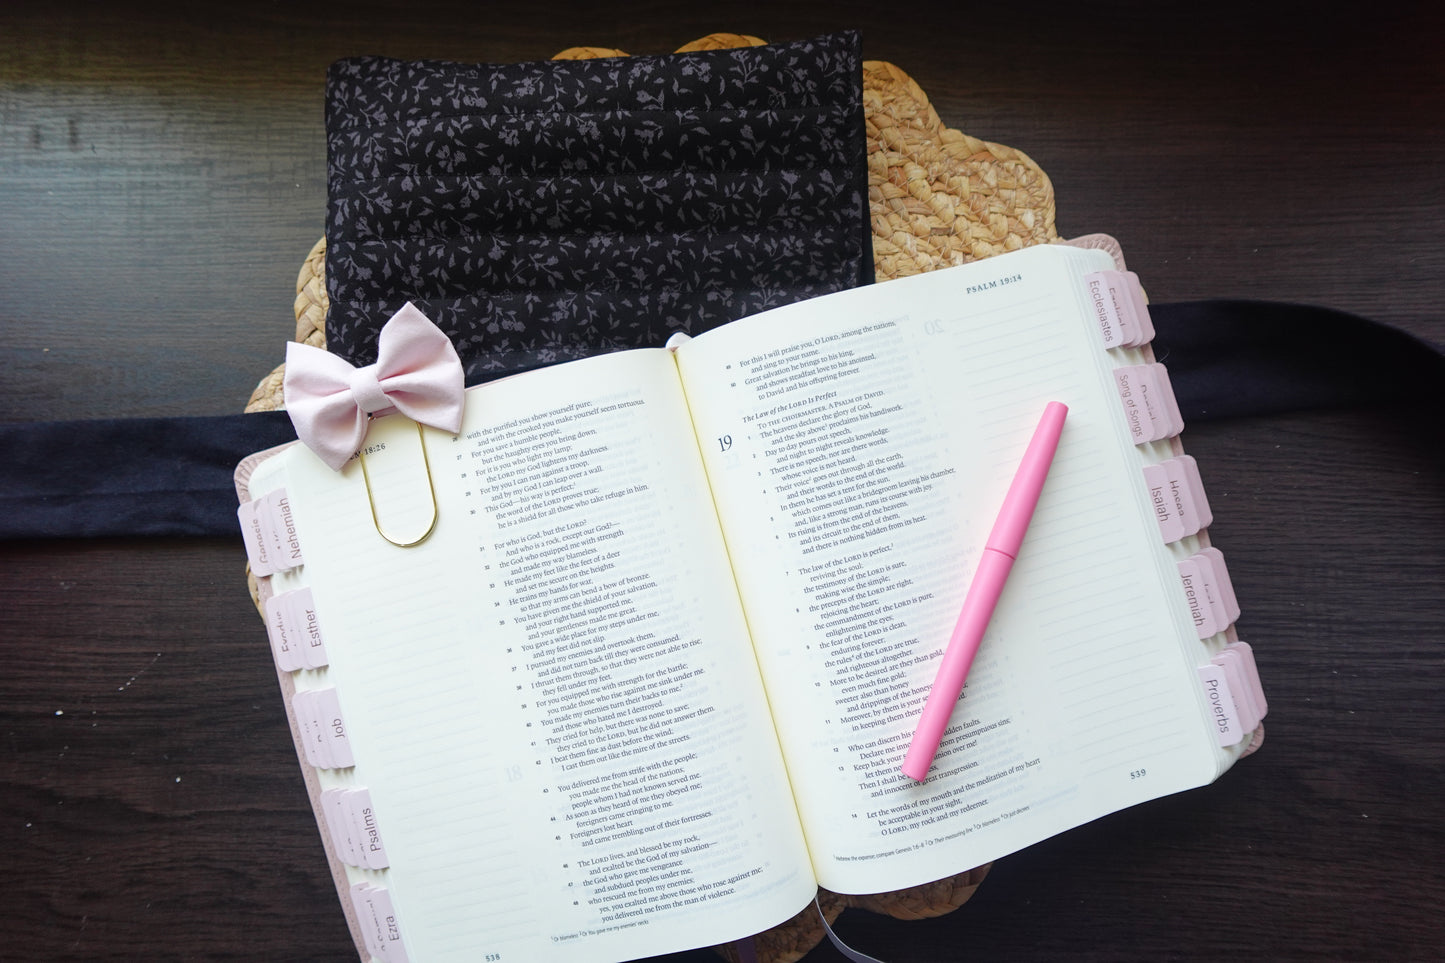 18:26
with the purified you show yourself pure,
and with the crooked you make yourself seem tortuous.
27 For you save a humble people,
but the haughty eyes you bring down.
28 For it is you who light my lamp;
the LORD my God lightens my darkness.
29 For by you I can run against a troop,
and by my God I can leap over a wall.
30 This God—his way is perfect;¹
the word of the LORD proves true;
he is a shield for all those who take refuge in him.
31 For who is God, but the LORD?
And who is a rock, except our God?—
32 the God who equipped me with strength
and made my way blameless.
33 He made my feet like the feet of a deer
and set me secure on the heights.
34 He trains my hands for war,
so that my arms can bend a bow of bronze.
35 You have given me the shield of your salvation,
and your right hand supported me,
and your gentleness made me great.
36 You gave a wide place for my steps under me,
and my feet did not slip.
37 I pursued my enemies and overtook them,
and did not turn back till they were consumed.
38 I thrust them through, so that they were not able to rise;
they fell under my feet.
39 For you equipped me with strength for the battle;
you made those who rise against me sink under me.
40 You made my enemies turn their backs to me,²
and those who hated me I destroyed.
41 They cried for help, but there was none to save;
they cried to the LORD, but he did not answer them.
42 I beat them fine as dust before the wind;
I cast them out like the mire of the streets.
43 You delivered me from strife with the people;
you made me the head of the nations;
people whom I had not known served me.
44 As soon as they heard of me they obeyed me;
foreigners came cringing to me.
45 Foreigners lost heart
and came trembling out of their fortresses.
46 The LORD lives, and blessed be my rock,
and exalted be the God of my salvation—
47 the God who gave me vengeance
and subdued peoples under me,
48 who rescued me from my enemies;
yes, you exalted me above those who rose against me;
you delivered me from the man of violence.
¹ Or blameless ² Or You gave me my enemies' necks
538
PSALM 19:14
49 For this I will praise you, O LORD, among the nations,
and sing to your name.
50 Great salvation he brings to his king,
and shows steadfast love to his anointed,
to David and his offspring forever.
The Law of the LORD Is Perfect
TO THE CHOIRMASTER. A PSALM OF DAVID.
19 1 The heavens declare the glory of God,
and the sky above¹ proclaims his handiwork.
2 Day to day pours out speech,
and night to night reveals knowledge.
3 There is no speech, nor are there words,
whose voice is not heard.
4 Their voice² goes out through all the earth,
and their words to the end of the world.
In them he has set a tent for the sun,
5 which comes out like a bridegroom leaving his chamber,
and, like a strong man, runs its course with joy.
6 Its rising is from the end of the heavens,
and its circuit to the end of them,
and there is nothing hidden from its heat.
7 The law of the LORD is perfect,³
reviving the soul;
the testimony of the LORD is sure,
making wise the simple;
8 the precepts of the LORD are right,
rejoicing the heart;
the commandment of the LORD is pure,
enlightening the eyes;
9 the fear of the LORD is clean,
enduring forever;
the rules⁴ of the LORD are true,
and righteous altogether.
10 More to be desired are they than gold,
even much fine gold;
sweeter also than honey
and drippings of the honey
11 Moreover, by them is your
in keeping them there
12 Who can discern his hidden faults.
Declare me inno
13 Keep back your from presumptuous sins;
let them no dominion over me!
Then I shall be
and innocent of great transgression.
14 Let the words of my mouth and the meditation of my heart
be acceptable in your sight,
O LORD, my rock and my redeemer.
¹ Hebrew the expanse; compare Genesis 1:6–8 ² Or Their measuring line ³ Or blameless ⁴ Or just decrees
539
Genesis
Nehemiah
Exodus
Esther
Job
Psalms
Ezra
Ecclesiastes
Ezekiel
Song of Songs
Daniel
Isaiah
Hosea
Jeremiah
Joel
Proverbs